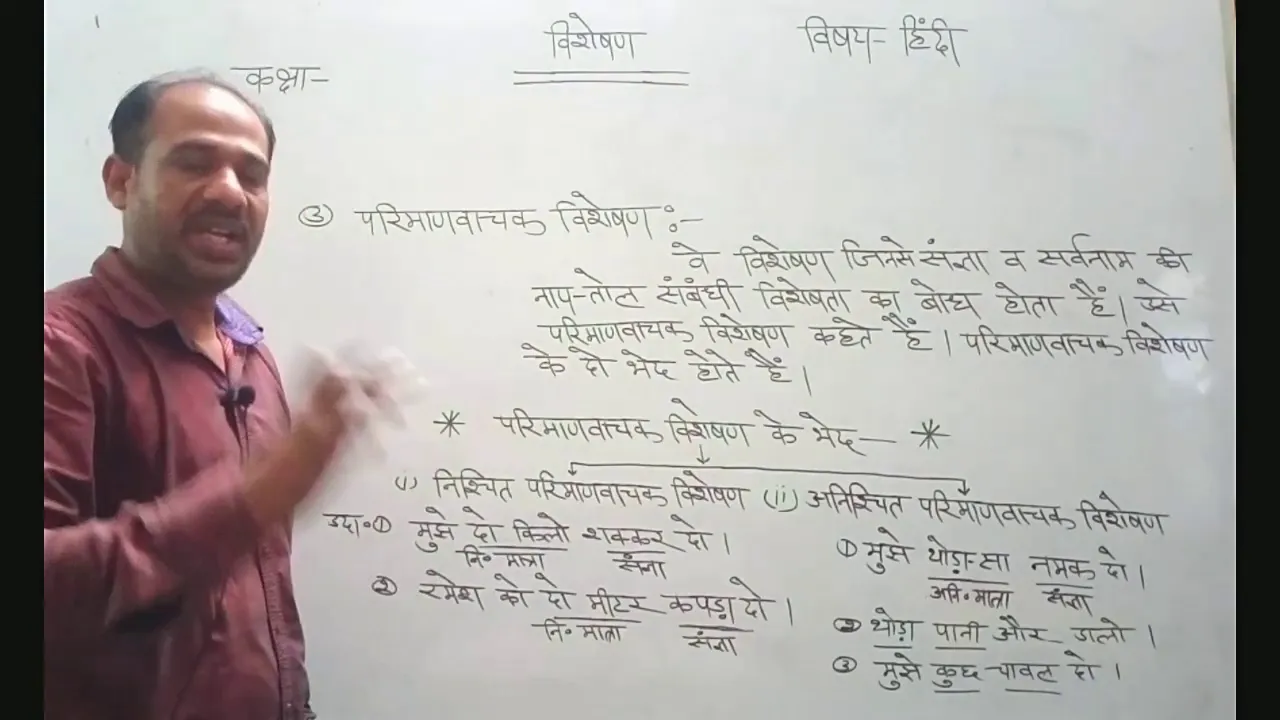 विशेषण
विषय- हिंदी
कक्षा-
③ परिमाणवाचक विशेषण :-
वे विशेषण जिनसे संज्ञा व सर्वनाम की
नाप-तोल संबंधी विशेषता का बोध होता हैं। उसे
परिमाणवाचक विशेषण कहते हैं। परिमाणवाचक विशेषण
के दो भेद होते हैं।
* परिमाणवाचक विशेषण के भेद— *
(i) निश्चित परिमाणवाचक विशेषण (ii) अनिश्चित परिमाणवाचक विशेषण
उदा॰ ① मुझे दो किलो शक्कर दो।
नि॰ मात्रा संज्ञा
② रमेश को दो मीटर कपड़ा दो।
नि॰ मात्रा संज्ञा
① मुझे थोड़ा-सा नमक दो।
अनि॰ मात्रा संज्ञा
② थोड़ा पानी और डालो।
③ मुझे कुछ चावल दो।